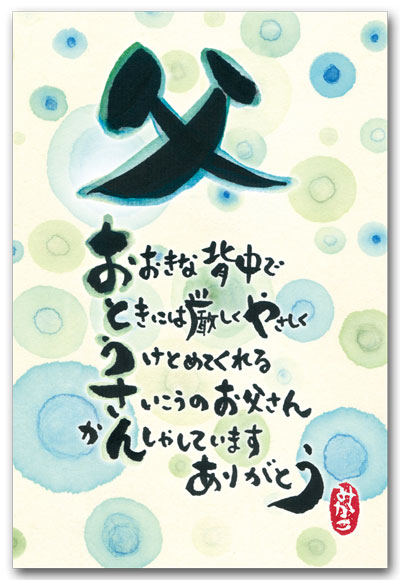 父
おおきな背中で
ときには厳しくやさしく
うけとめてくれる
さいこうのお父さん
かんしゃしています
ありがとう
みかこ